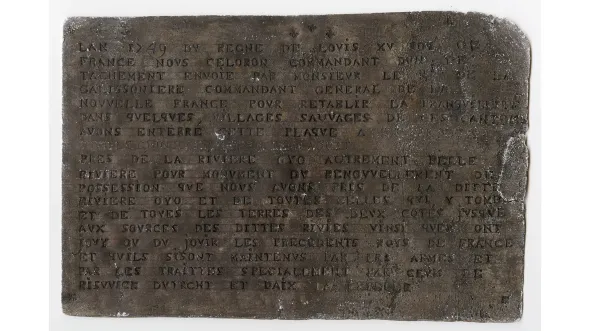 LAN 1749 DV REGNE DE LOVIS XV ROY DE
FRANCE NOVS CELORON COMMANDANT DVN DE
TACHEMENT ENVOIE PAR MONSIEVR LE DE LA
GALISSONIERE COMMANDANT GENERAL DE LA
NOUVELLE FRANCE POVR RETABLIR LA
DANS QVELQVES VILLAGES SAUVAGES DE CES CANTONS
AVONS ENTERRE CETTE PLAQVE A
PRES DE LA RIVIERE OYO AUTREMENT BELLE
RIVIERE POVR MONVMENT DV RENOVVELLEMENT DE
POSSESSION QVE NOVS AVONS PRIS DE LA DITTE
RIVIERE OYO ET DE TOVTES CELLES QVI Y TOMB
ET DE TOVES LES TERRES DES DEVX COTES JVSQVE
AVX SOVRCES DES DITTES RIVIES VINSI QVEN ONT
JOVY OV DV JOVIR LES PRECEDENTS ROYS DE FRANCE
ET QVILS SISONT MAINTENVS PAR LES ARMES ET
PAR LES TRAITTES SPECIALEMENT PAR CEVX DE
RISVVICK DVTRCHT ET DAIX LA CHAPELLE